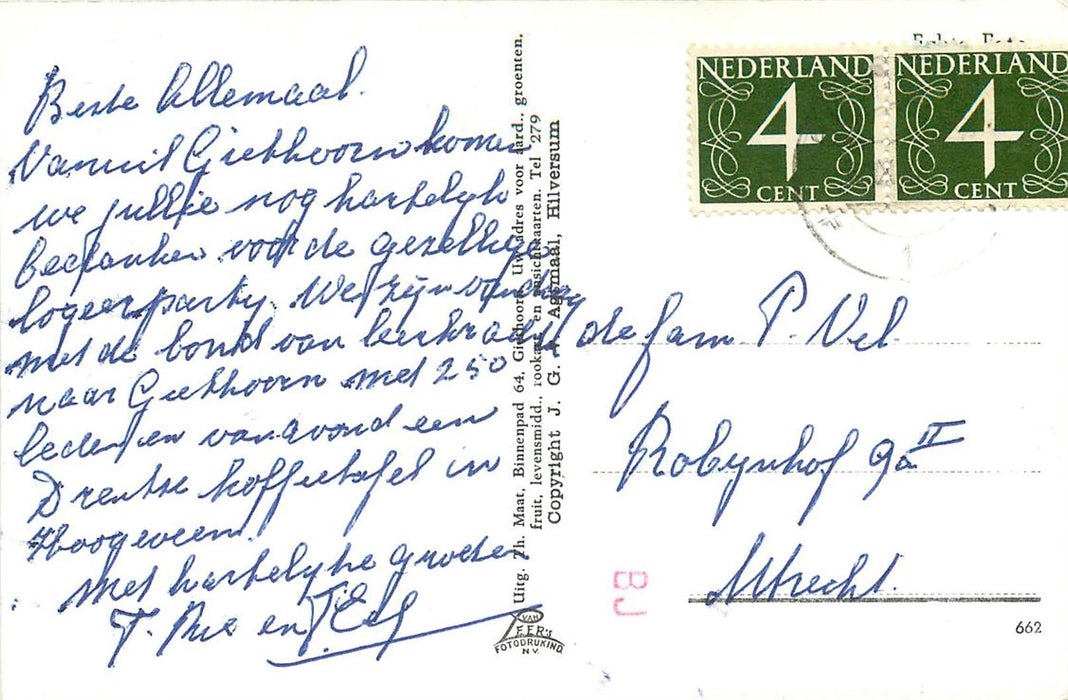 Beste Allemaal.
Vanuit Giethoorn komen
we jullie nog hartelyk
bedanken voor de gezellige
logeerparty. We zijn vandaag
met de bond van leerkracht
naar Giethoorn met 250
leden en vanavond een
Drentse koffietafel in
Hoogeveen.
Met hartelyke groeten
T. en T.
Uitg. Th. Maat, Binnenpad 64, Giethoorn. Uw adres voor aard., groenten,
fruit, levensmidd., rookart. en ansichtkaarten. Tel 279
Copyright J. G. A. Agsmaal, Hilversum
VAN
LEER'S
FOTODRUKIND.
N.V.
Echte Foto
NEDERLAND
4
CENT
NEDERLAND
4
CENT
1
de fam P. Vel
Robynhof 9a II
Utrecht.
BJ
662